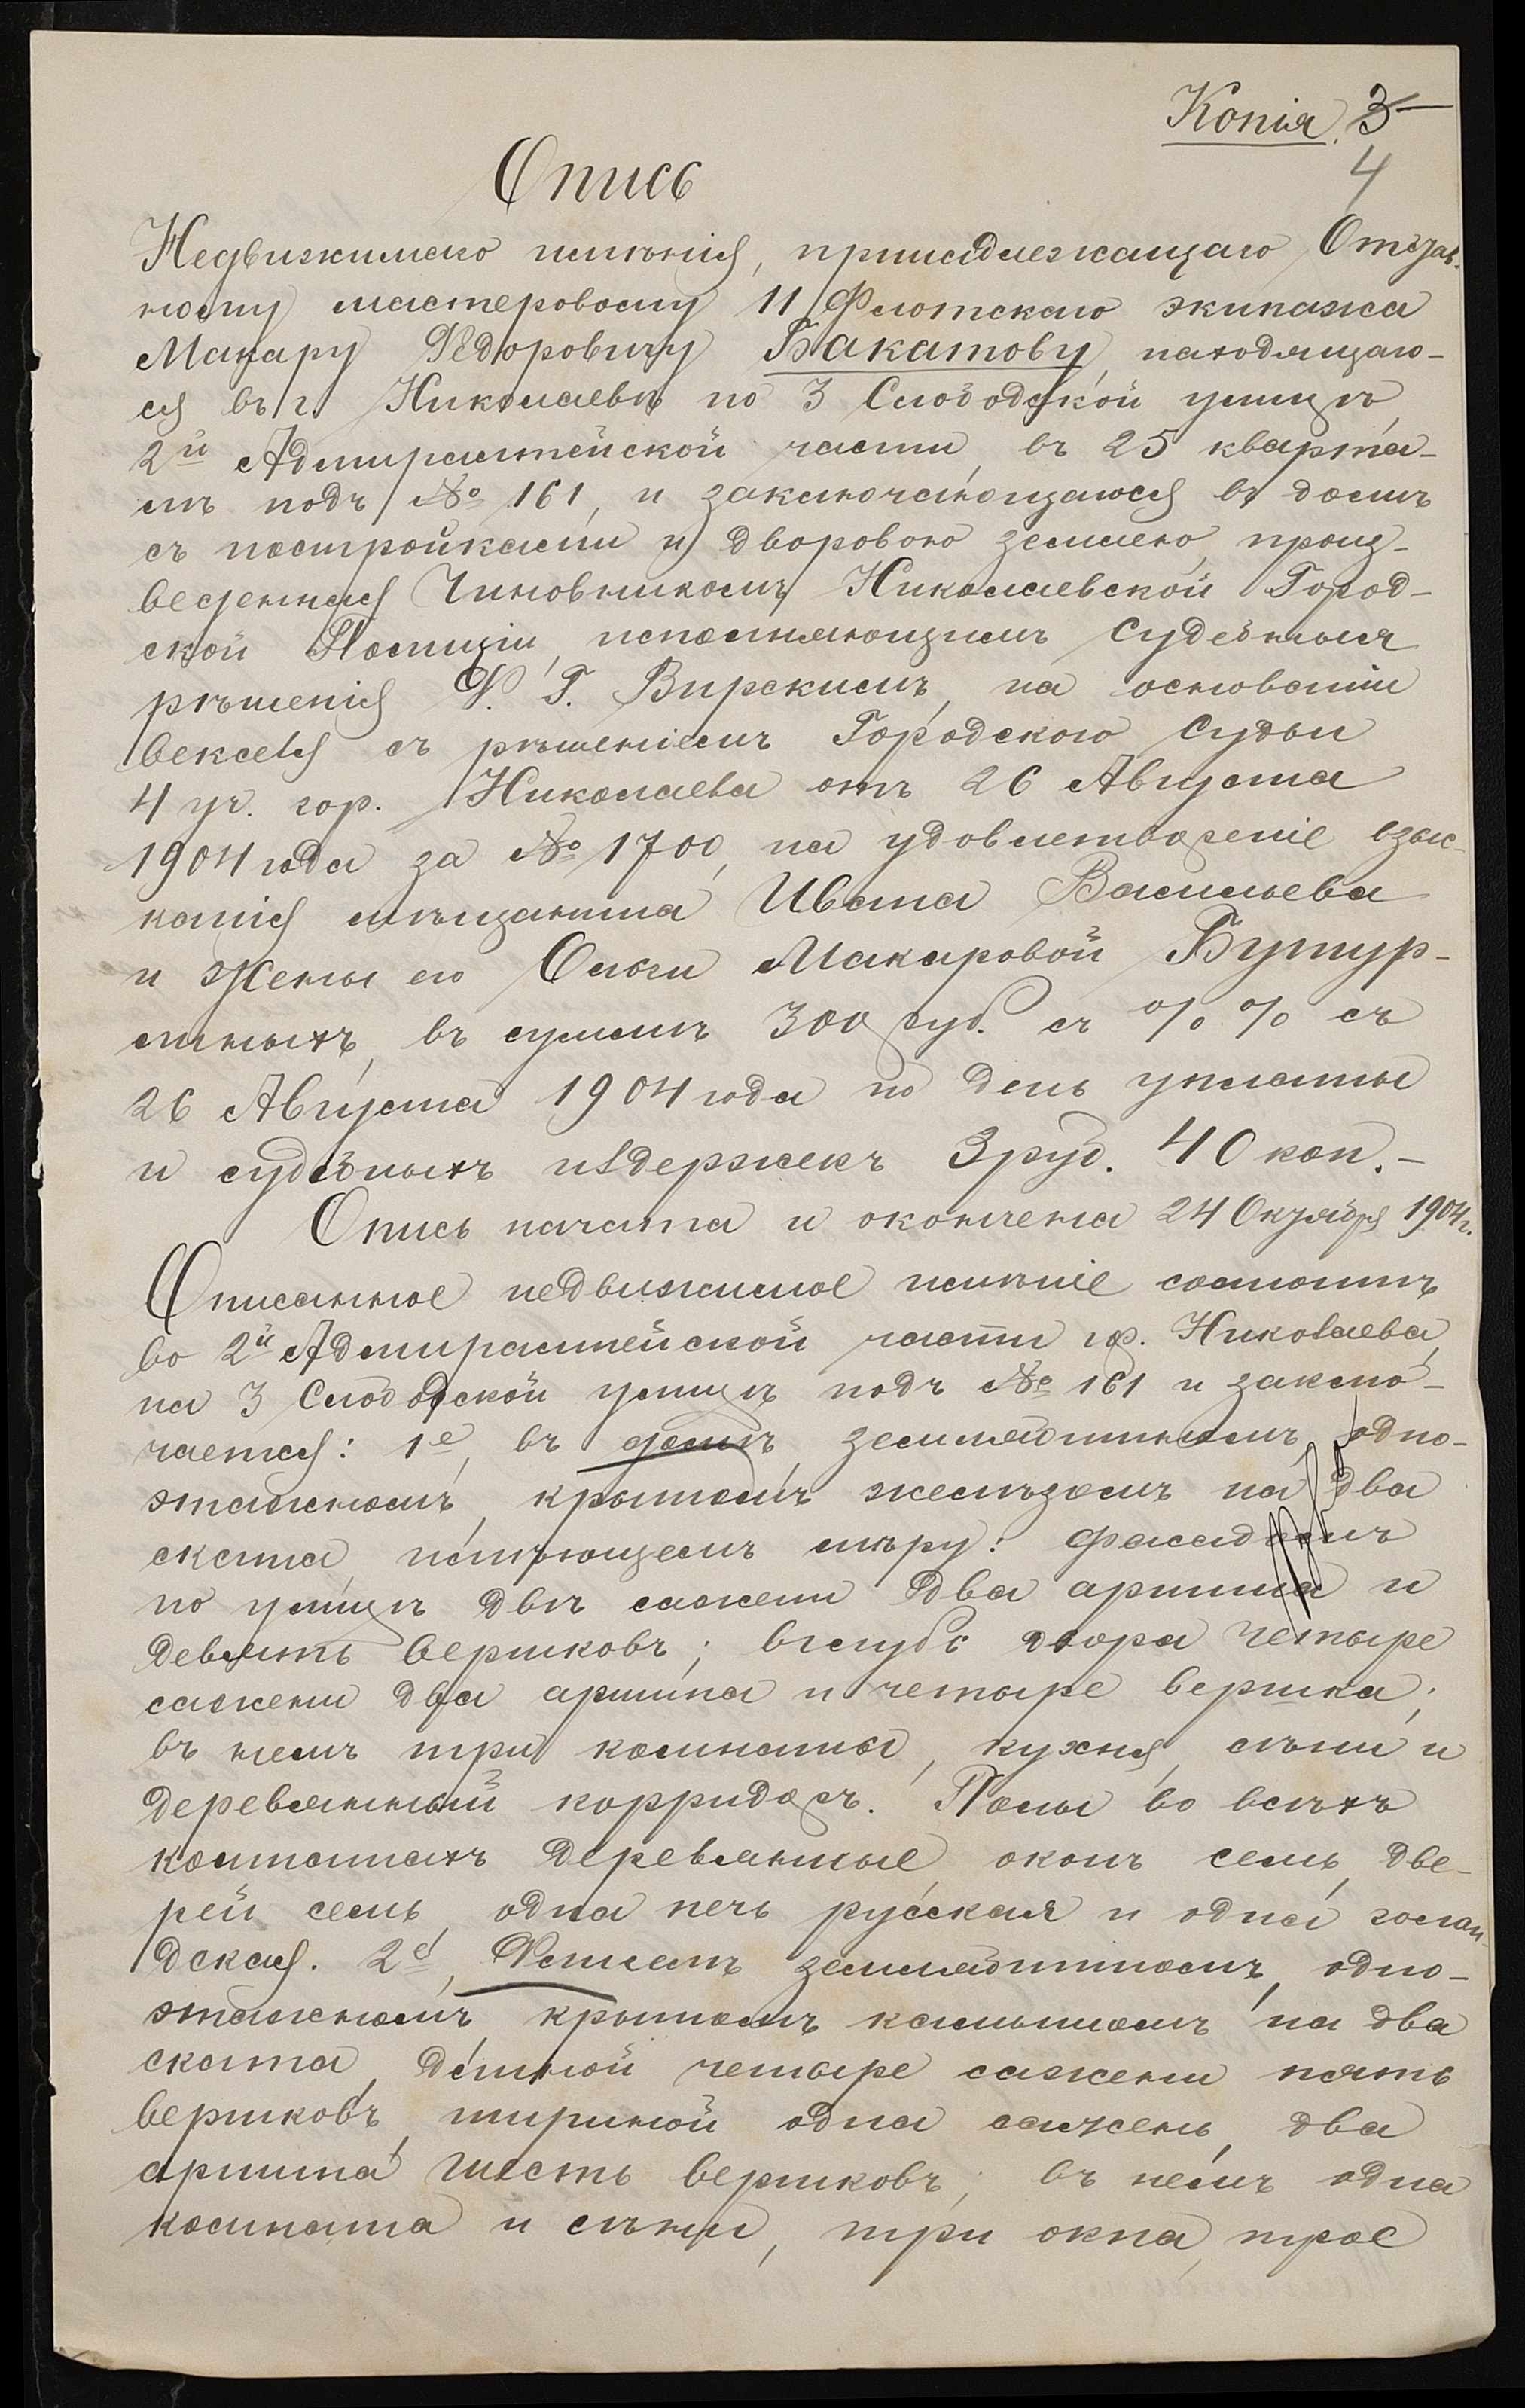 Копія. 3
4
Опись
Недвижимаго имѣнія, принадлежащаго Отстав-
ному мастеровому 11 Флотскаго экипажа
Макару Ѳедоровичу Бакатову, находящаго-
ся въ г. Николаевѣ по 3 Слободской улицѣ,
2й Адмиралтейской части, въ 25 кварта-
лѣ подъ № 161, и заключающагося въ домѣ
съ постройками и дворовою землею, произ-
веденная Чиновникомъ Николаевской Город-
ской Полиціи, исполняющимъ судебныя
рѣшенія Ѵ. Г. Вирскимъ, на основаніи
векселя съ рѣшеніемъ Городского Судьи
4 уч. гор. Николаева отъ 26 Августа
1904 года за № 1700, на удовлетвореніе взыс-
канія мѣщанина Ивана Васильева
и жены его Ольги Макаровой Бутур-
линыхъ, въ суммѣ 300 руб. съ %% съ
26 Августа 1904 года по день уплаты
и судебныхъ издержекъ 3 руб. 40 коп.-
Опись начата и окончена 24 Октября 1904 г.
Описанное недвижимое имѣніе состоитъ
во 2й Адмиралтейской части гор. Николаева,
на 3 Слободской улицѣ подъ № 161 и заклю-
чается: 1е, въ домѣ землебитномъ, одно-
этажномъ, крытомъ желѣзомъ на два
ската, имѣющемъ мѣру: фасадомъ
по улицѣ двѣ сажени два аршина и
девять вершковъ; вглубь двора четыре
сажени два аршина и четыре вершка;
въ немъ три комнаты, кухня, сѣни и
деревянный корридоръ. Полы во всѣхъ
комнатахъ деревянные, оконъ семь, две-
рей семь, одна печь русская и одна голан-
дская. 2е, Флигелѣ землебитномъ, одно-
этажномъ, крытомъ камышомъ на два
ската, длиной четыре сажени пять
вершковъ, шириной одна сажень, два
аршина шесть вершковъ; въ немъ одна
комната и сѣни, три окна, трое